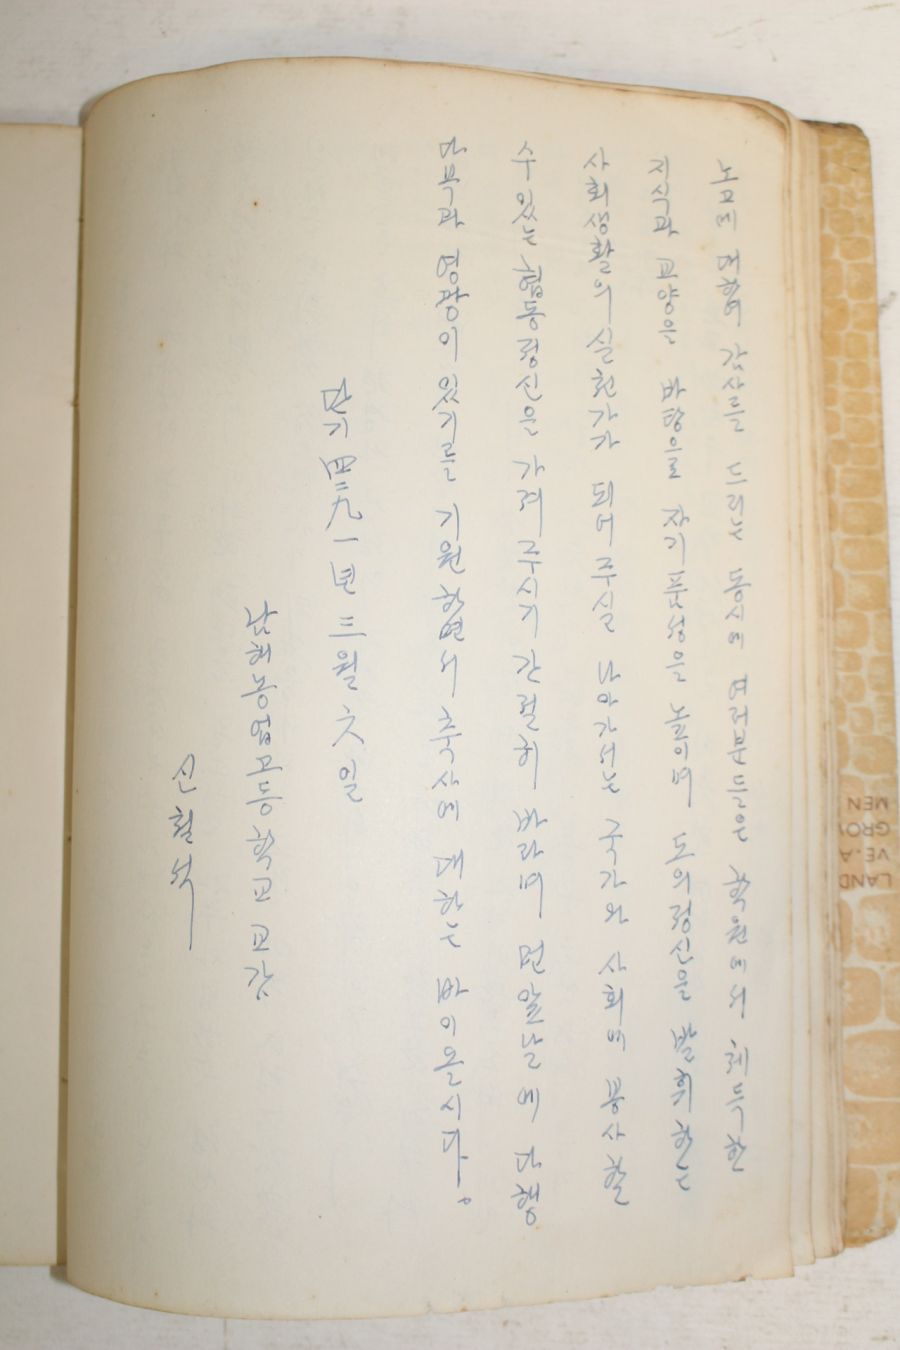 노고에 대하여 감사를 드리는 동시에 여러분들은 학원에서 체득한
지식과 교양을 바탕으로 자기품성을 높이며 도의정신을 발휘하는
사회생활의 실천가가 되어주실 나아가서는 국가와 사회에 봉사할
수 있는 협동정신을 가져주시기 간절히 바라며 먼 앞날에 다행
다복과 영광이 있기를 기원하면서 축사에 대하는 바이올시다.
단기 四二九一년 三월 六일
남해농업고등학교 교감
신철석
LAND
VE. A
GROV
MEN